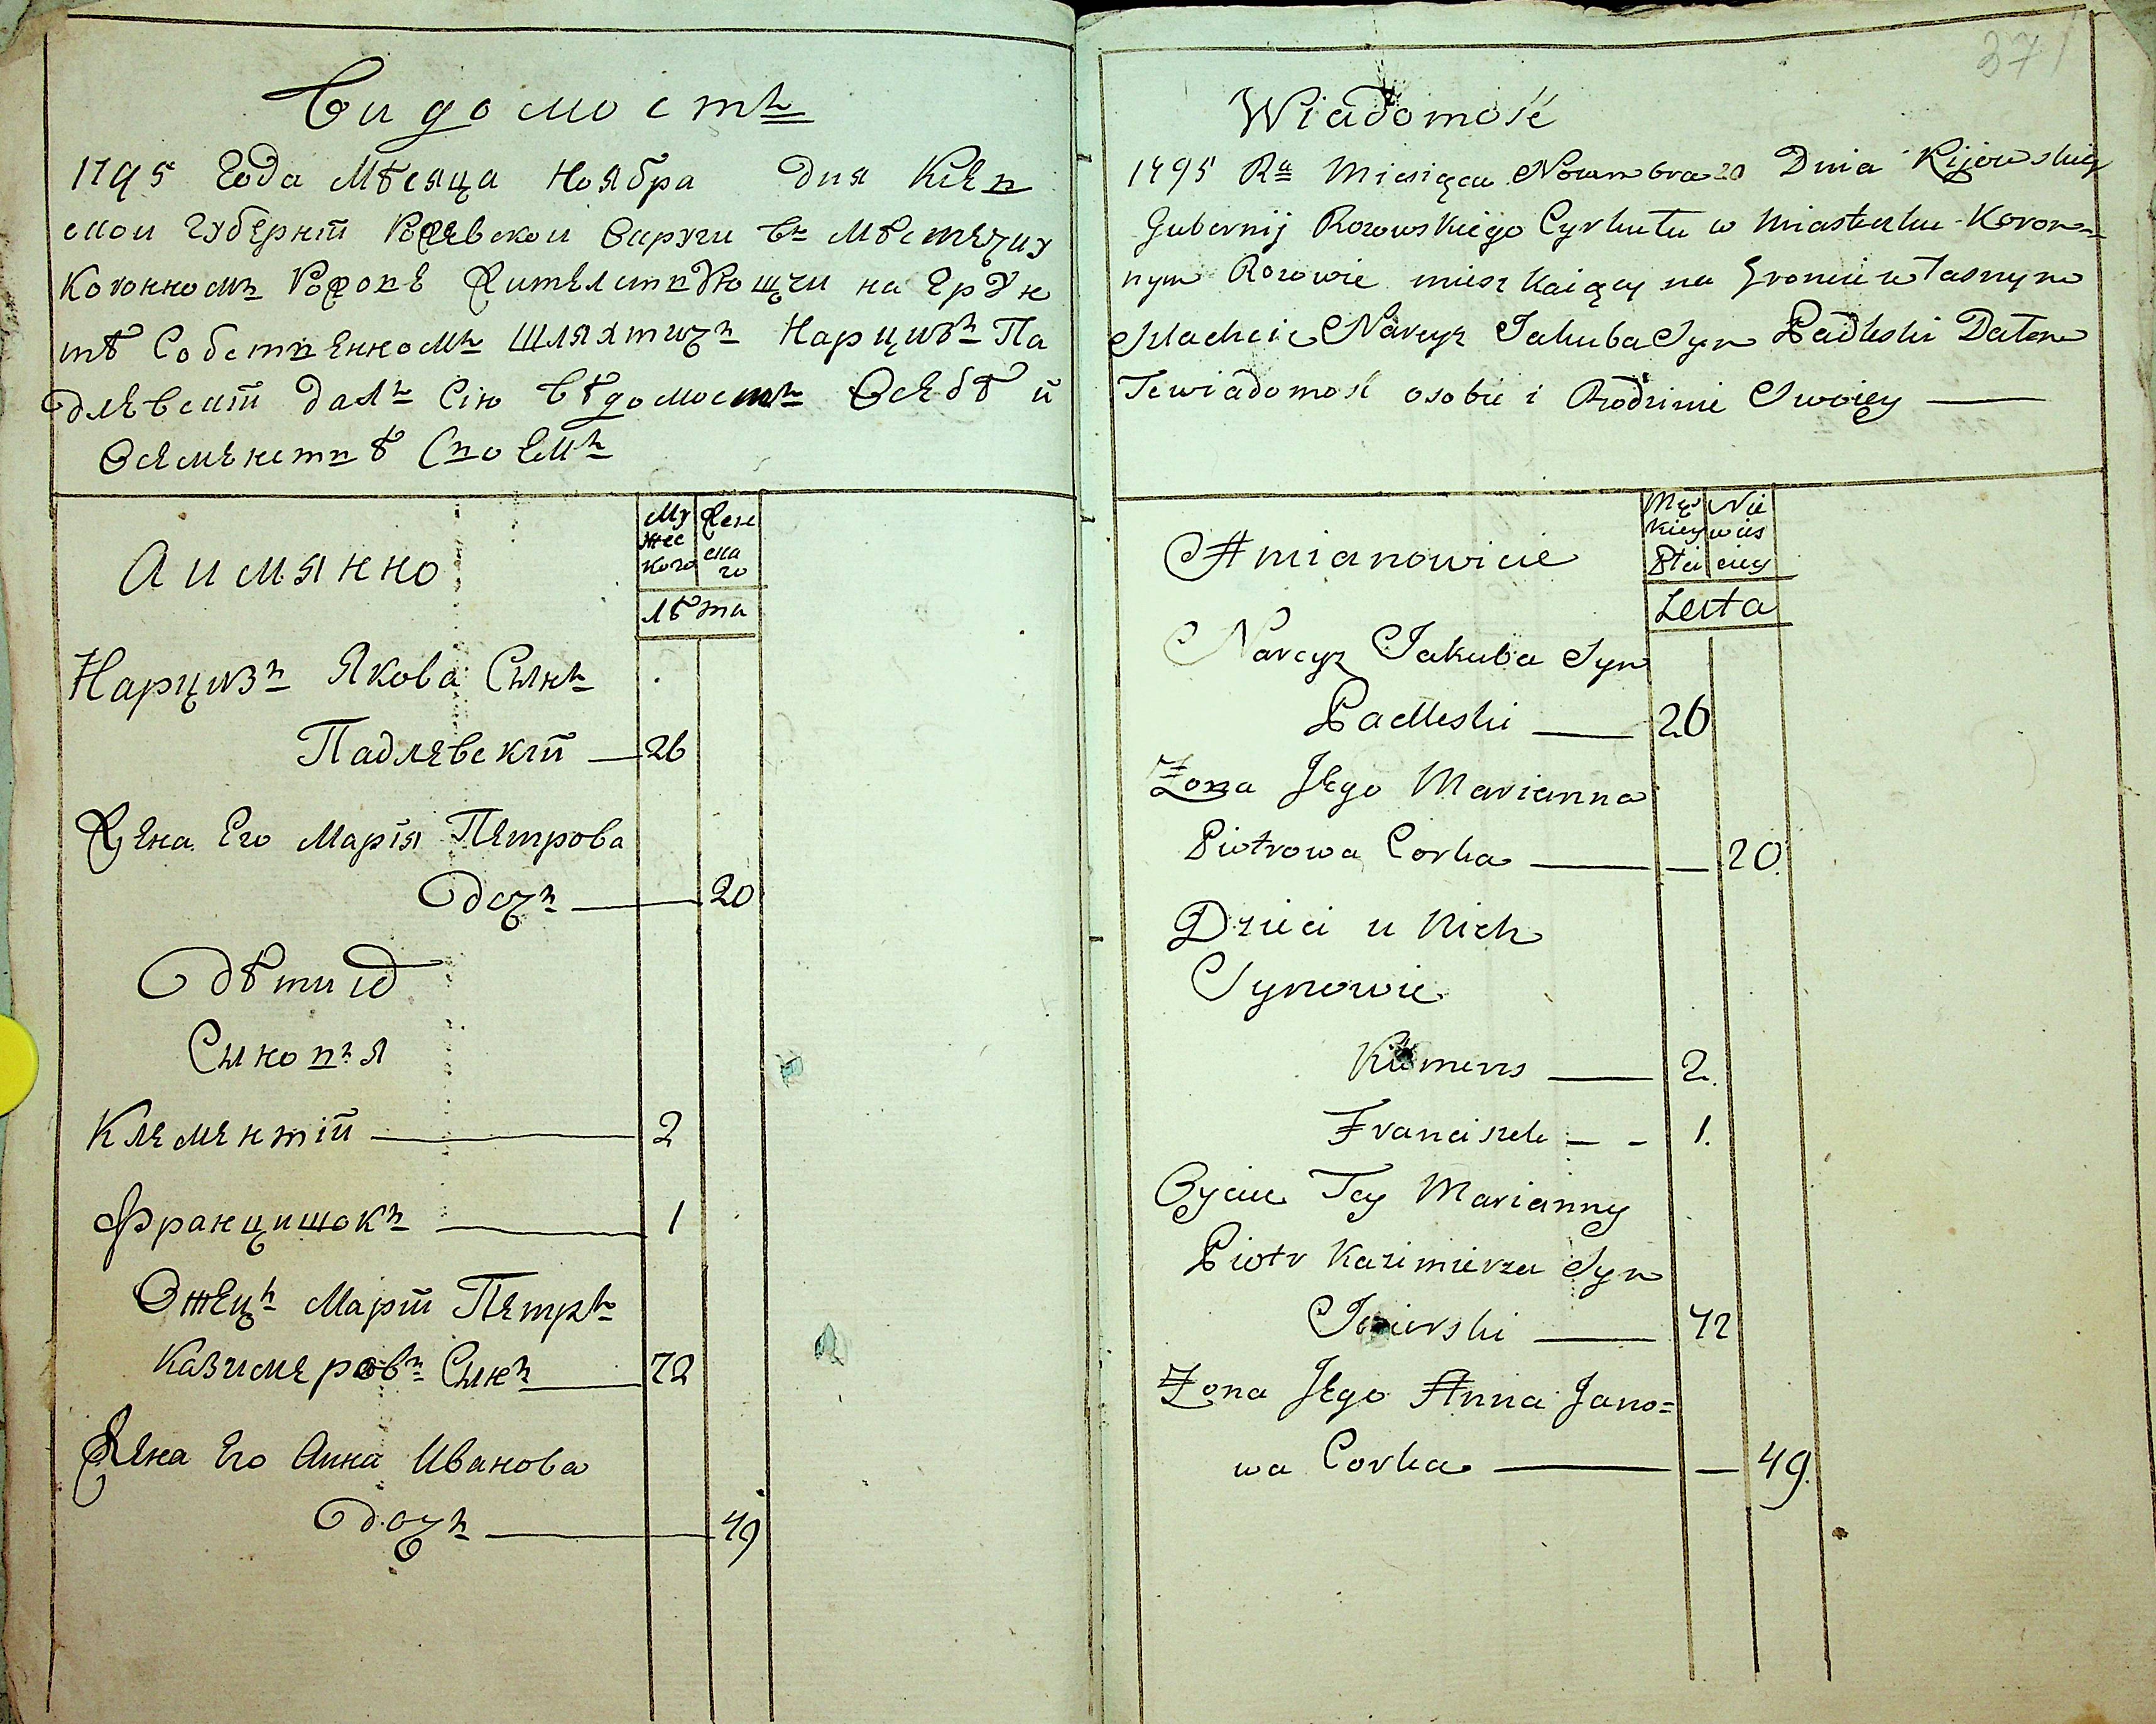 Видомостъ
1795 Года Мѣсяца Ноября Дня Кіев
ской Губерніи Рожевской Округи въ Мѣстечку
Коронномъ Рожове Жителствующчи на Ґрун
тѣ Собственномъ Шляхтичъ Нарцизъ Па
длевскій далъ Сію вѣдомостъ О себѣ и
О семенствѣ своемъ
А имянно
Му
жес
кого
Жен
ска
го
лѣта
Нарцизъ Якова Сынъ
Падлевскій — 26
Жена Его Марія Петрова
дочъ — 20
дѣти ихъ
Сыновъя
Клементій — 2
Францишокъ — 1
Отецъ Маріи Петръ
Казимеровъ Сынъ — 72
Жена Его Анна Иванова
дочъ — 49
371
Wiadomość
1795 Rᵘ Miesiąca Nowembra 20 Dnia Kijowskiey
Gubernij Rozowskiego Cyrkułu w Miasteczku Koron=
nym Rozowie mieszkaiący na Groncie własnym
Szlachcic Narcyz Jakuba Syn Padleski Dałem
Te wiadomość o sobie i Rodzinie Swoiey —
A mianowicie
Mę
skiey
Płci
Nie
wies
ciey
Leta
Narcyz Jakuba Syn
Padleski — 26
Żona Jego Marianna
Piotrowa Corka — — 20.
Dzieci u Nich
Synowie
Klemens — 2.
Franciszek — - 1.
Oyciec Tey Marianny
Piotr Kazimierza Syn
— 72
Żona Jego Anna Jano=
wa Corka — — 49.